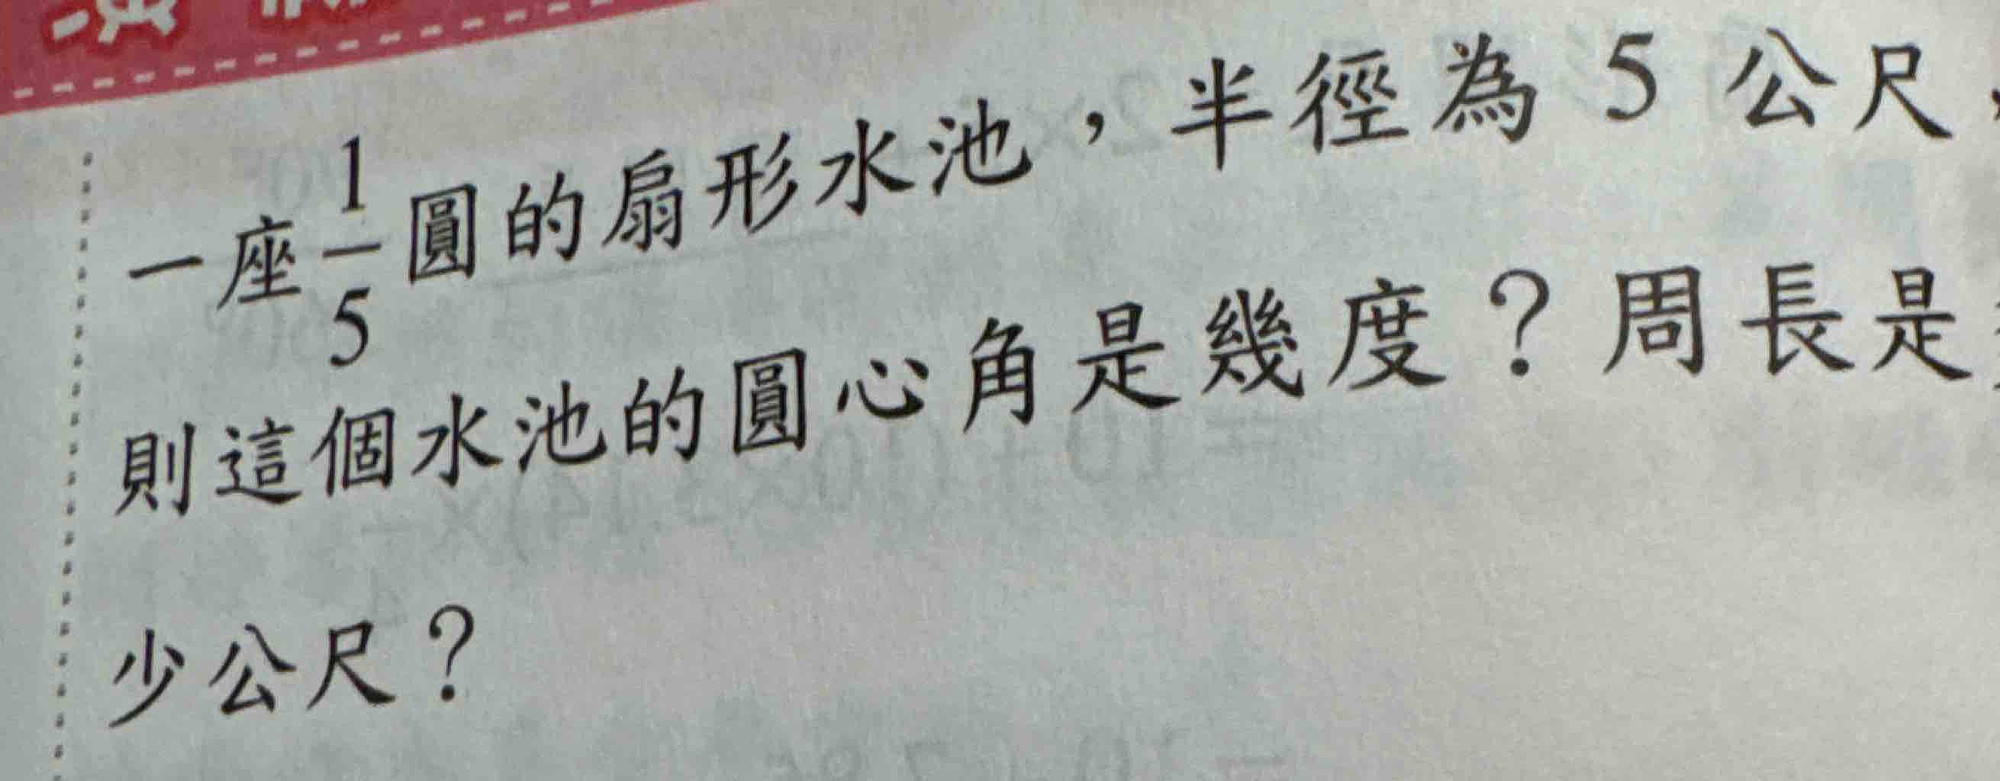 一座1/5圓的扇形水池，半徑為 5 公尺，
則這個水池的圓心角是幾度？周長是
少公尺？